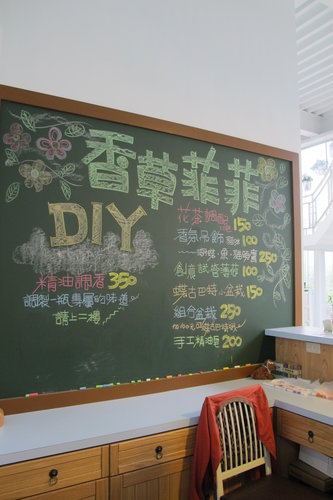 香草菲菲
DIY
精油調香 350
調製一瓶專屬的味道
請上二樓
花茶調配 150
香氛吊飾 100
蝴蝶、魚、貓頭鷹 250
創意試管種花 100
蝶古巴特小盆栽 150
組合盆栽 250
手工精油皂 200